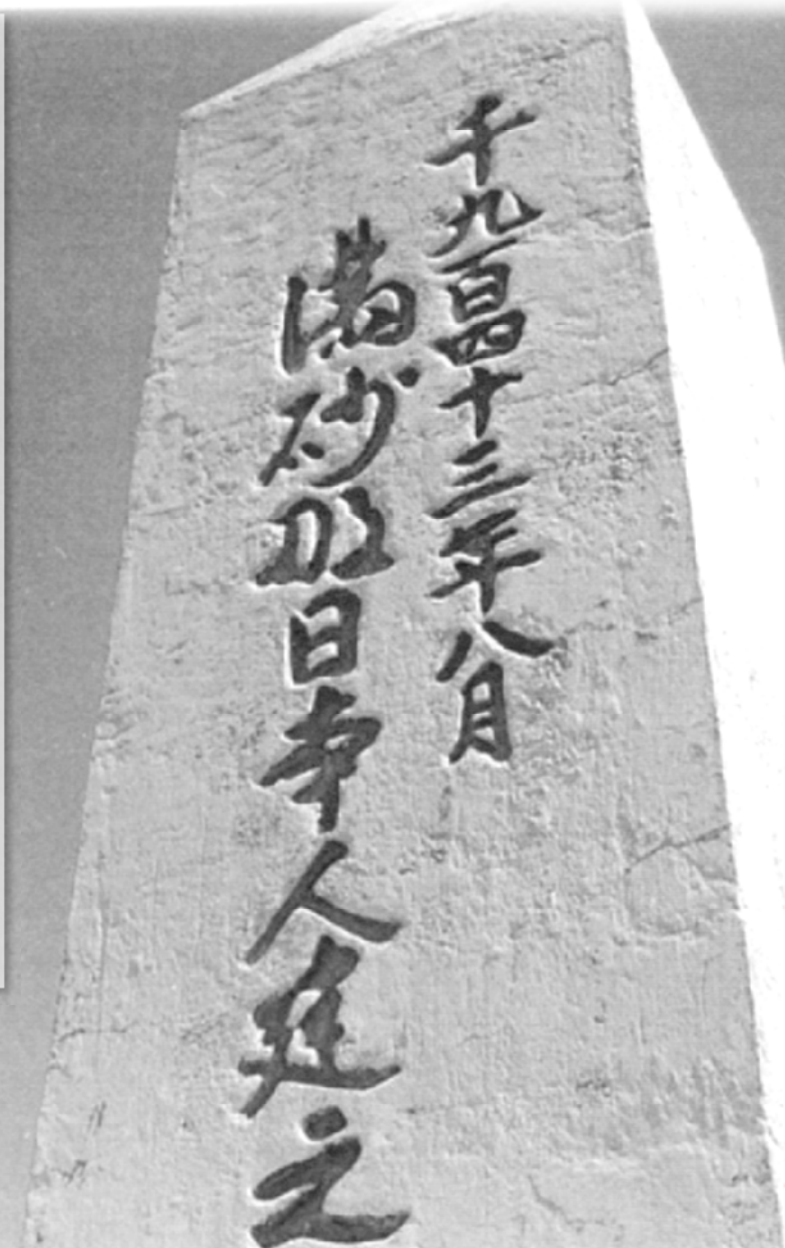 千九百四十三年八月
満砂那日本人建之